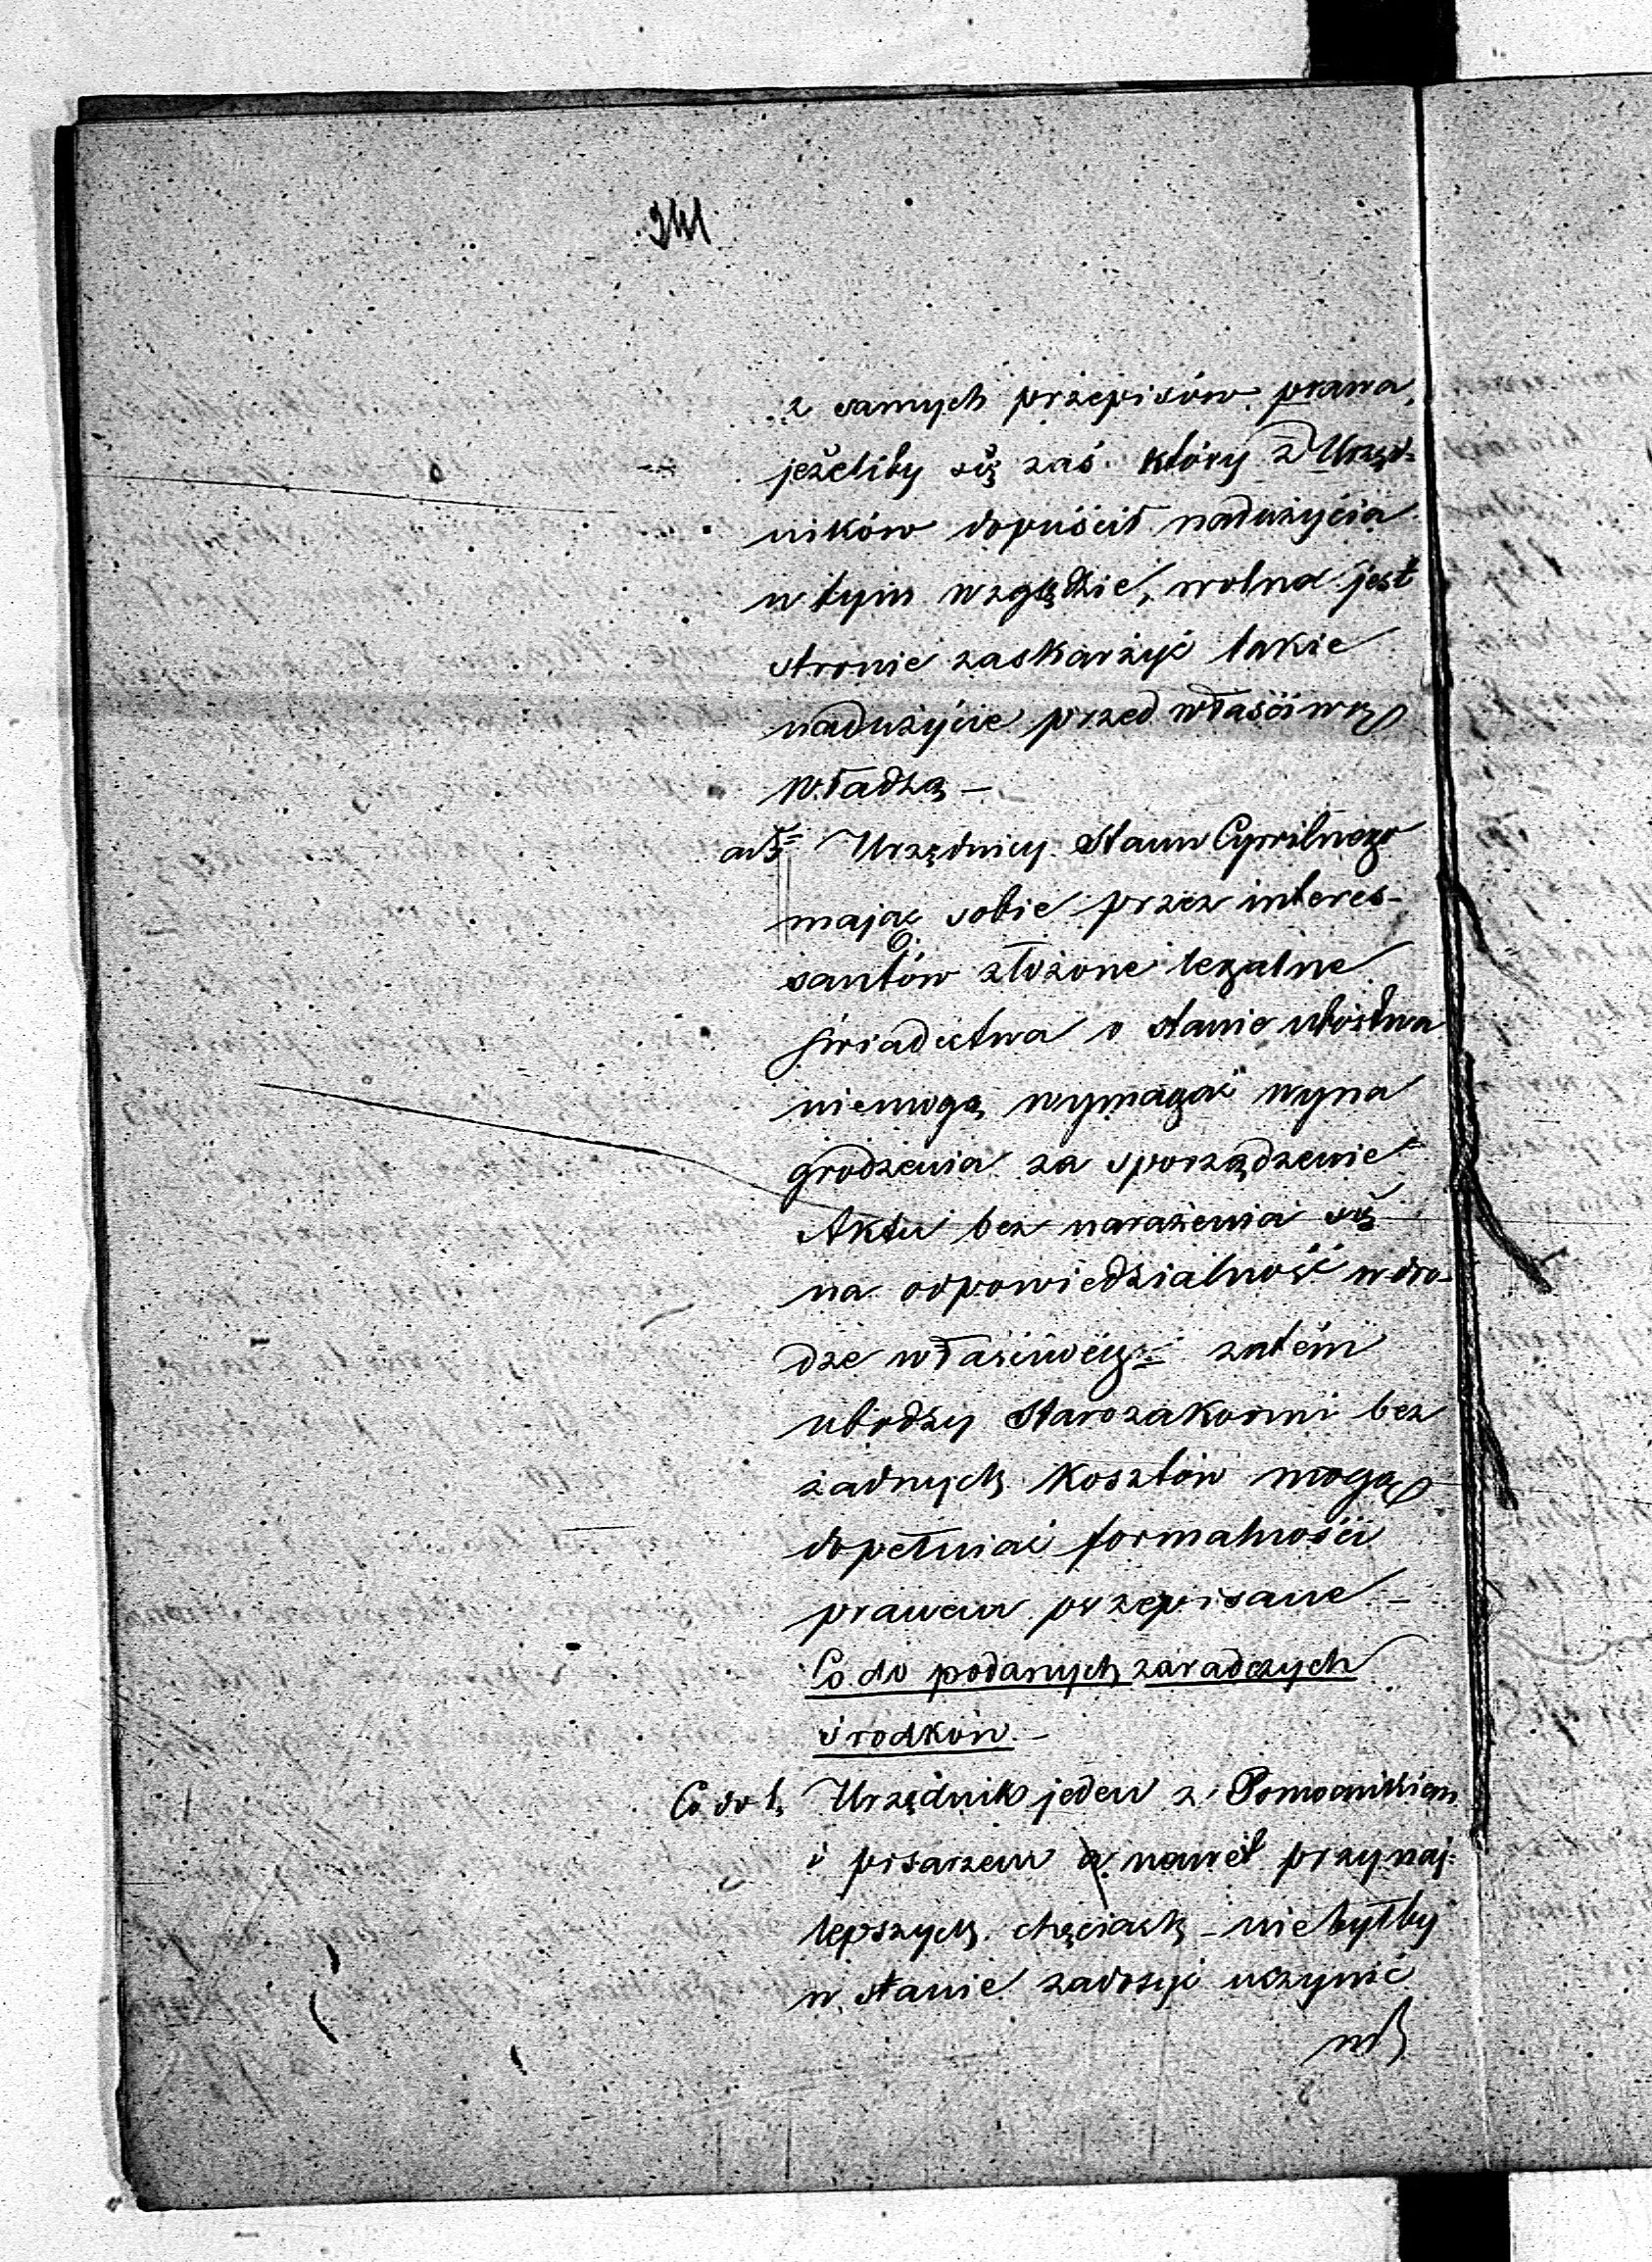 241
z samych przepisów prawa,
jeżeliby się zaś który z Urzęd=
ników dopuścił nadużycia
w tym względzie, wolno jest
stronie zaskarżyć takie
nadużycie przed właściwą
władzą –
ad 3= Urzędnicy Stanu Cywilnego
mając sobie przez interes-
santów złożone legalne
świadectwa o stanie ubóstwa
niemogą wymagać wyna
grodzenia za sporządzenie
Aktu bez narażenia się
na odpowiedzialność w dro-
dze właściwéj – zatém
ubodzy Starozakonni bez
żadnych kosztów mogą
dopełniać formalności
prawem przepisane –
Co do podanych zaradczych
środków. –
Co do 1, Urzędnik jeden z Pomocnikiem
i pisarzem nawet przynaj-
lepszych chęciach – niebyłby
w stanie zadosyć uczynić